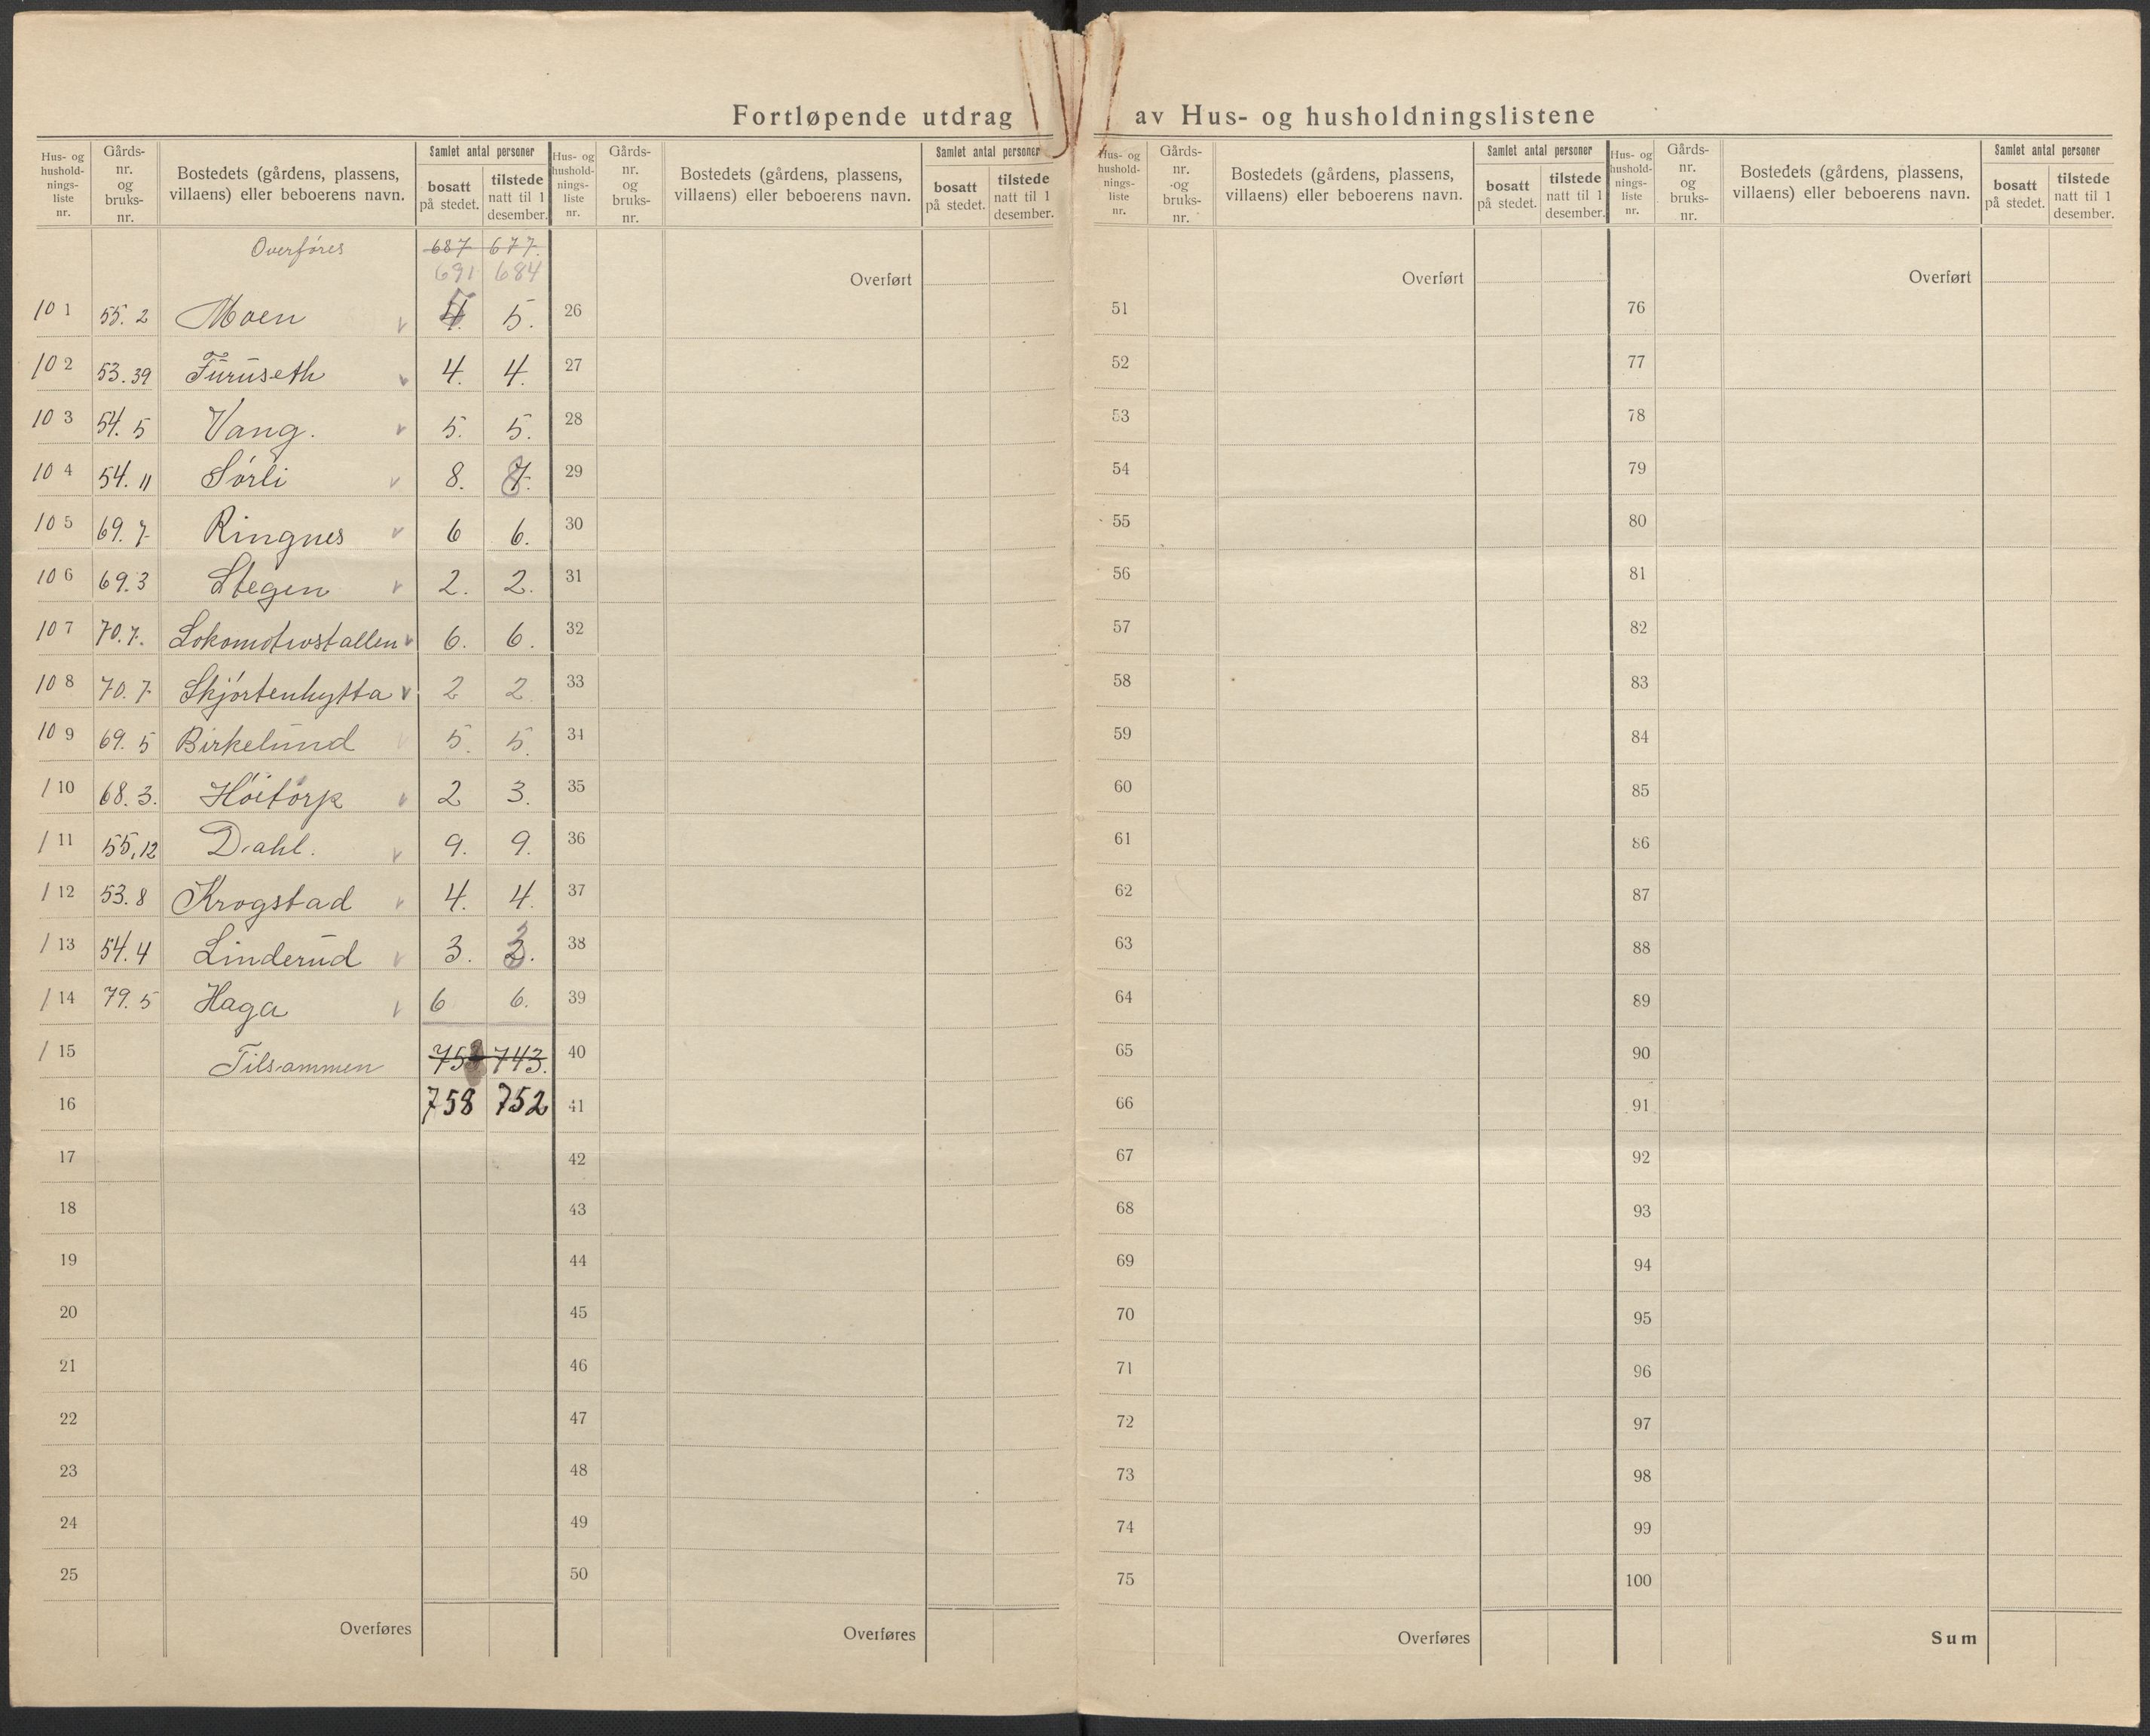 Fortløpende utdrag av Hus- og husholdningslistene
Hus- og hushold- nings- liste nr. Gårds- nr. og bruks- nr. Bostedets (gårdens, plassens, villaens) eller beboerens navn. Samlet antal personer bosatt på stedet. tilstede natt til 1 desember.
Hus- og hushold- nings- liste nr. Gårds- nr. og bruks- nr. Bostedets (gårdens, plassens, villaens) eller beboerens navn. Samlet antal personer bosatt på stedet. tilstede natt til 1 desember.
Hus- og hushold- nings- liste nr. Gårds- nr. og bruks- nr. Bostedets (gårdens, plassens, villaens) eller beboerens navn. Samlet antal personer bosatt på stedet. tilstede natt til 1 desember.
Hus- og hushold- nings- liste nr. Gårds- nr. og bruks- nr. Bostedets (gårdens, plassens, villaens) eller beboerens navn. Samlet antal personer bosatt på stedet. tilstede natt til 1 desember.
Overføres 687 677.
691 684 Overført Overført Overført
10 1 55. 2 Moen 5 5. 26 51 76
10 2 53. 39 Furuseth 4. 4. 27 52 77
10 3 54. 5 Vang. 5. 5. 28 53 78
10 4 54. 11 Sørli 8. 8 29 54 79
10 5 69. 7 Ringnes 6 6. 30 55 80
10 6 69. 3 Stegen 2. 2. 31 56 81
10 7 70. 7. Lokomotivstallen 6. 6. 32 57 82
10 8 70. 7 Skjørtenhytta 2 2 33 58 83
10 9 69. 5 Birkelund 5. 5. 34 59 84
1 10 68. 3. Høitorp 2 3. 35 60 85
1 11 55, 12 Dahl. 9. 9. 36 61 86
1 12 53. 8 Krogstad 4. 4. 37 62 87
1 13 54. 4 Linderud 3. 3. 38 63 88
1 14 79. 5 Haga 6 6. 39 64 89
1 15 Tilsammen 743. 40 65 90
16 758 752 41 66 91
17 42 67 92
18 43 68 93
19 44 69 94
20 45 70 95
21 46 71 96
22 47 72 97
23 48 73 98
24 49 74 99
25 50 75 100
Overføres Overføres Overføres Sum